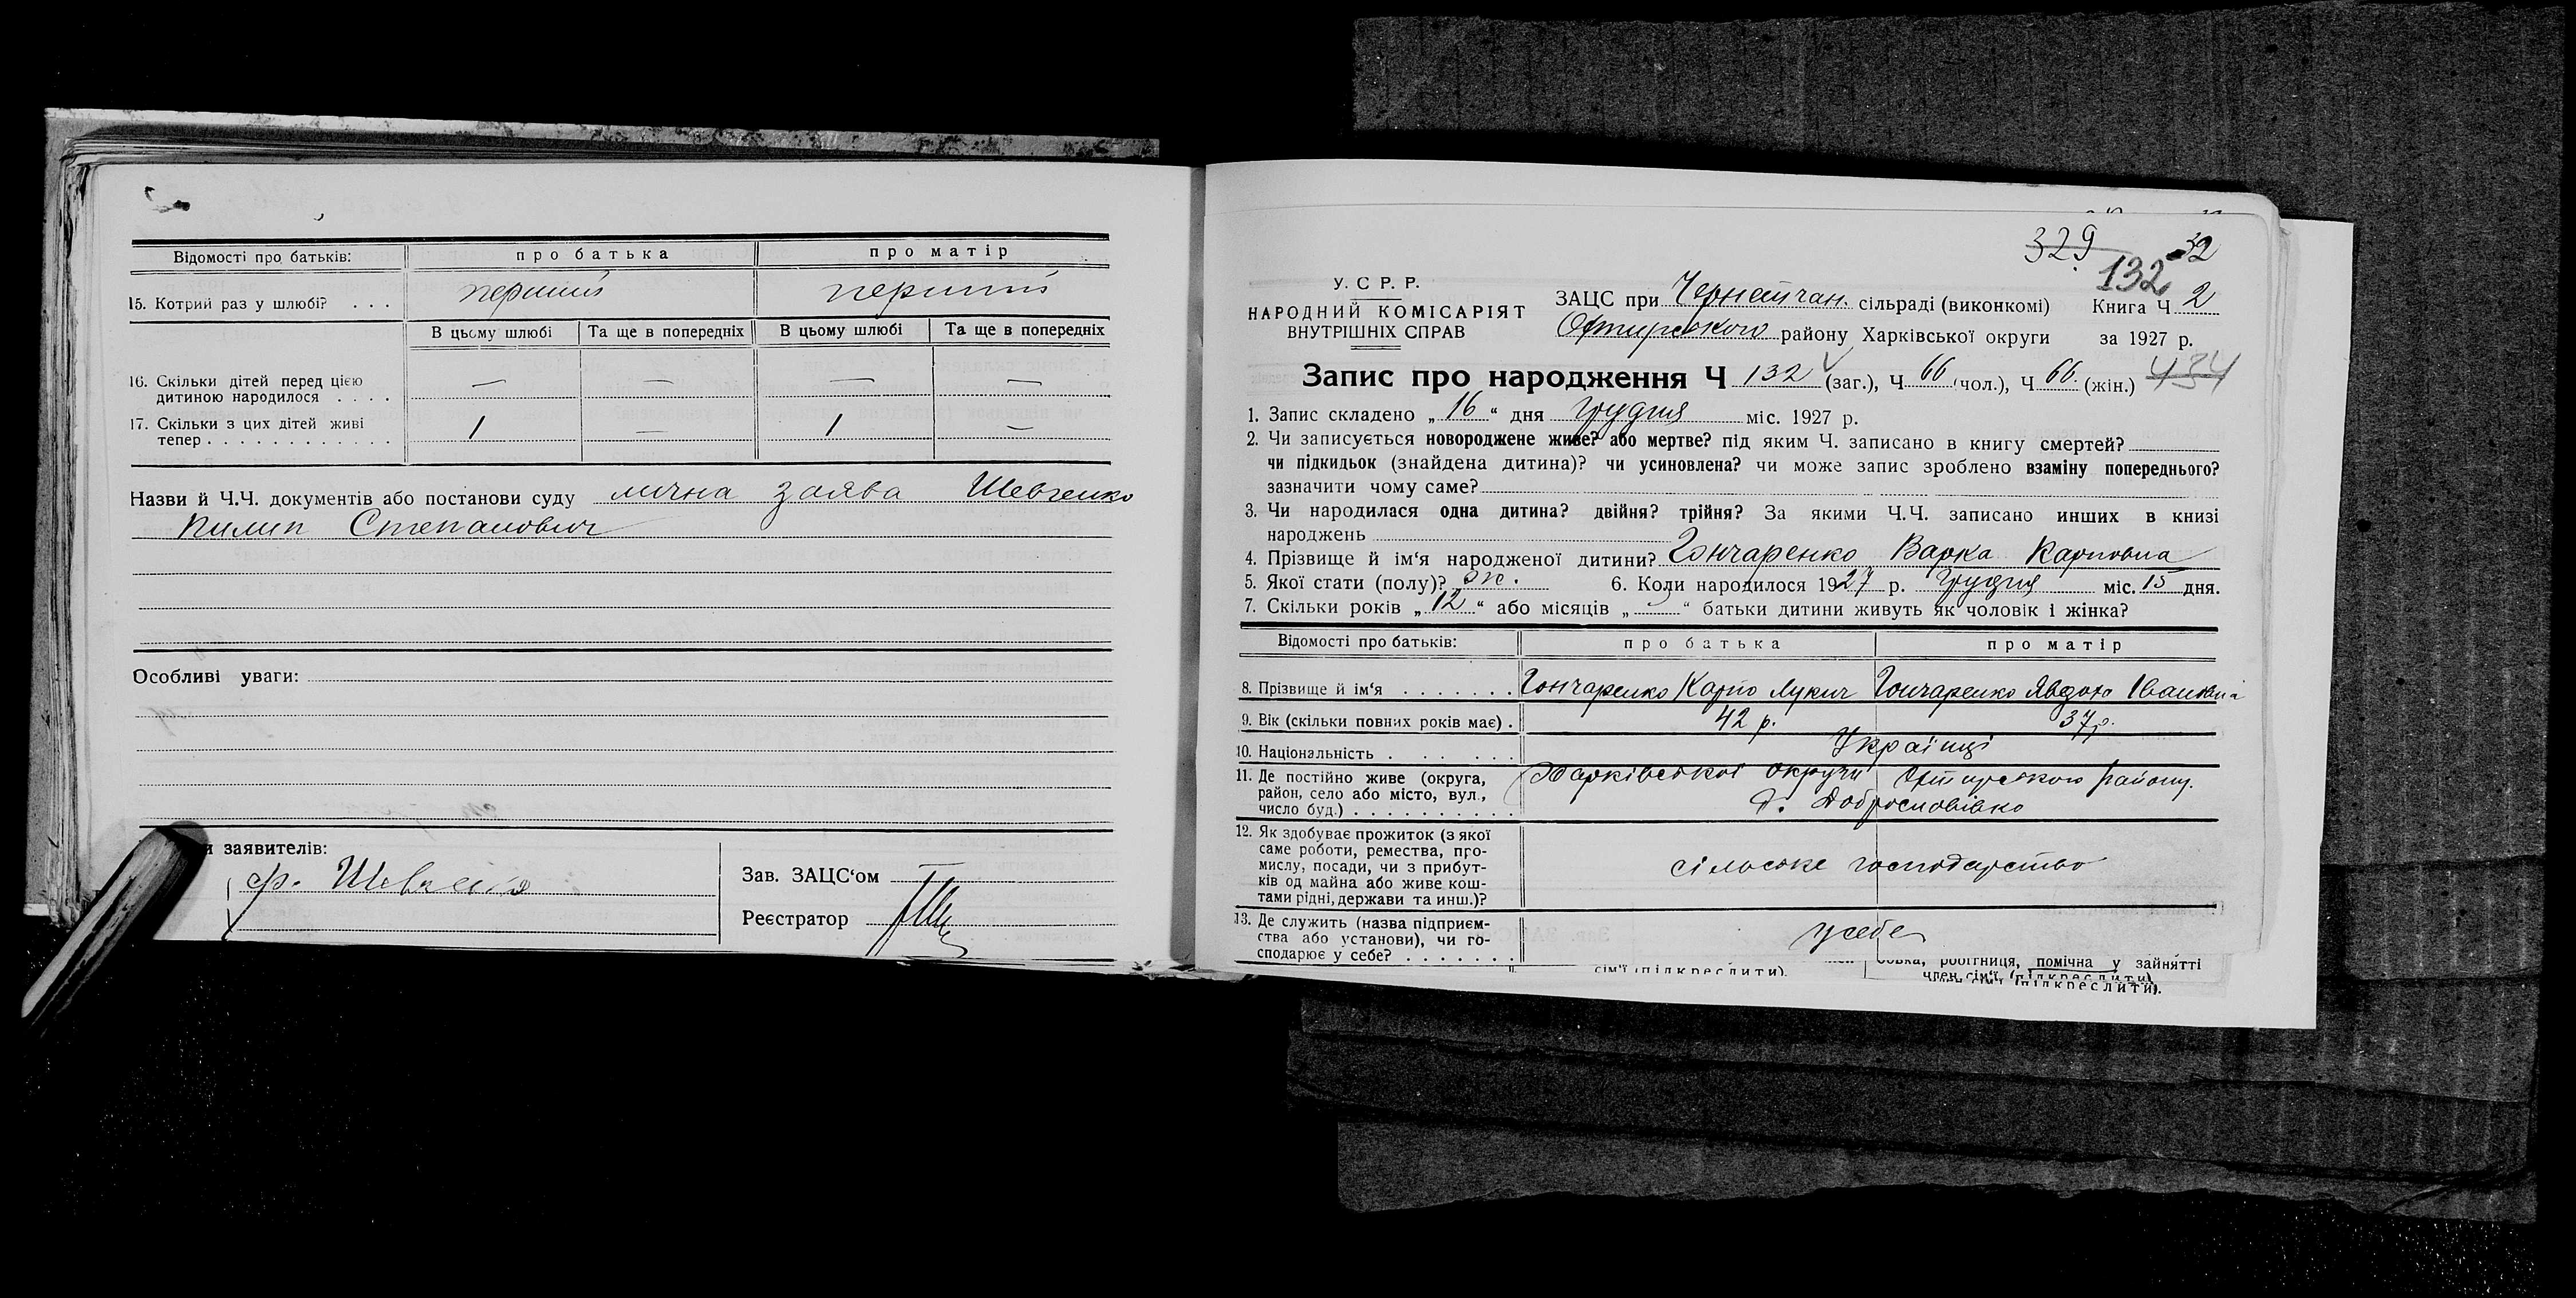 Відомості про батьків: про батька про матір
15. Котрий раз у шлюбі? . . . перший перший
В цьому шлюбі Та ще в попередніх В цьому шлюбі Та ще в попередніх
16. Скільки дітей перед цією
дитиною народилося . . . . — — — —
17. Скільки з цих дітей живі
тепер . . . . . . . . . . . . . 1 — 1 —
Назви й Ч.Ч. документів або постанови суду лична заява Шевченко
Пилип Степанович
Особливі уваги:
и заявителів:
ф. Шевченко
Зав. ЗАЦС‘ом
Реєстратор
329 32
132
У. С Р. Р.
НАРОДНИЙ КОМІСАРІЯТ
ВНУТРІШНІХ СПРАВ
ЗАЦС при Чернетчан. сільраді (виконкомі) Книга Ч 2
Охтирського району Харківської округи за 1927 р.
Запис про народження Ч 132 (заг.), Ч 66 (чол.), Ч 66. (жін.) 434
1. Запис складено „ 16 “ дня грудня міс. 1927 р.
2. Чи записується новороджене живе? або мертве? під яким Ч. записано в книгу смертей?
чи підкидьок (знайдена дитина)? чи усиновлена? чи може запис зроблено взаміну попереднього?
зазначити чому саме?
3. Чи народилася одна дитина? двійня? трійня? За якими Ч.Ч. записано инших в книзі
народжень
4. Прізвище й ім‘я народженої дитини? Гончаренко Варка Карповна
5. Якої стати (полу)? ж. 6. Коли народилося 1927 р. грудня міс. 15 дня.
7. Скільки років „ 12 “ або місяців „ — “ батьки дитини живуть як чоловік і жінка?
Відомості про батьків: про батька про матір
8. Прізвище й ім‘я . . . . . . . Гончаренко Карпо Лукич Гончаренко Явдоха Івановна
9. Вік (скільки повних років має) . 42 р. 37 р.
10. Національність . . . . . . Українці
11. Де постійно живе (округа, Харківської округи Охтирського району.
район, село або місто, вул.,
число буд.) . . . . . . . . . . . Д. Доброславівка
12. Як здобуває прожиток (з якої
саме роботи, ремества, про-
мислу, посади, чи з прибут-
ків од майна або живе кош-
тами рідні, держави та инш.)? сільське господарство
13. Де служить (назва підприєм-
ства або установи), чи го-
сподарює у себе? . . . . . . . у себе
робітниця, помічна у зайнятті
сім‘ї (підкреслити). член сім‘ї, (підкреслити)
(підкреслити).